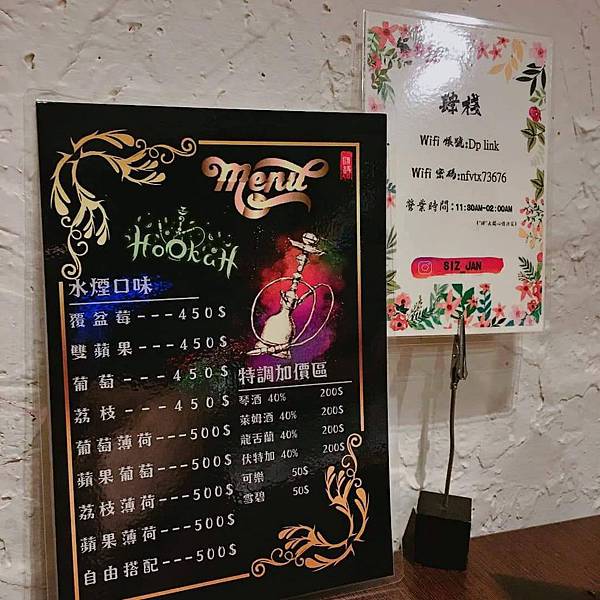 Menu
HOOKAH
水煙口味
覆盆莓---450$
雙蘋果---450$
葡萄---450$
荔枝---450$
葡萄薄荷---500$
蘋果葡萄---500$
荔枝薄荷---500$
蘋果薄荷---500$
自由搭配---500$
特調加價區
琴酒 40% 200$
萊姆酒 40% 200$
龍舌蘭 40% 200$
伏特加 40% 200$
可樂 50$
雪碧 50$
肆棧
Wifi 帳號:Dp link
Wifi 密碼:nfvtx73676
營業時間：11:30AM-02:00AM
SIZ JAN